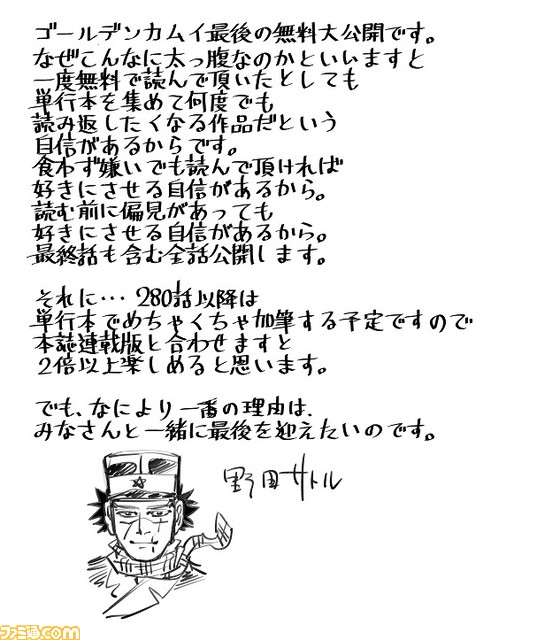 ゴールデンカムイ最後の無料大公開です。
なぜこんなに太っ腹なのかといいますと
一度無料で読んで頂いたとしても
単行本を集めて何度でも
読み返したくなる作品だという
自信があるからです。
食わず嫌いでも読んで頂ければ
好きにさせる自信があるから。
読む前に偏見があっても
好きにさせる自信があるから。
最終話も含む全話公開します。
それに… 280話以降は
単行本でめちゃくちゃ加筆する予定ですので
本誌連載版と合わせますと
2倍以上楽しめると思います。
でも、なにより一番の理由は、
みなさんと一緒に最後を迎えたいのです。
野田サトル
ファミ通.com